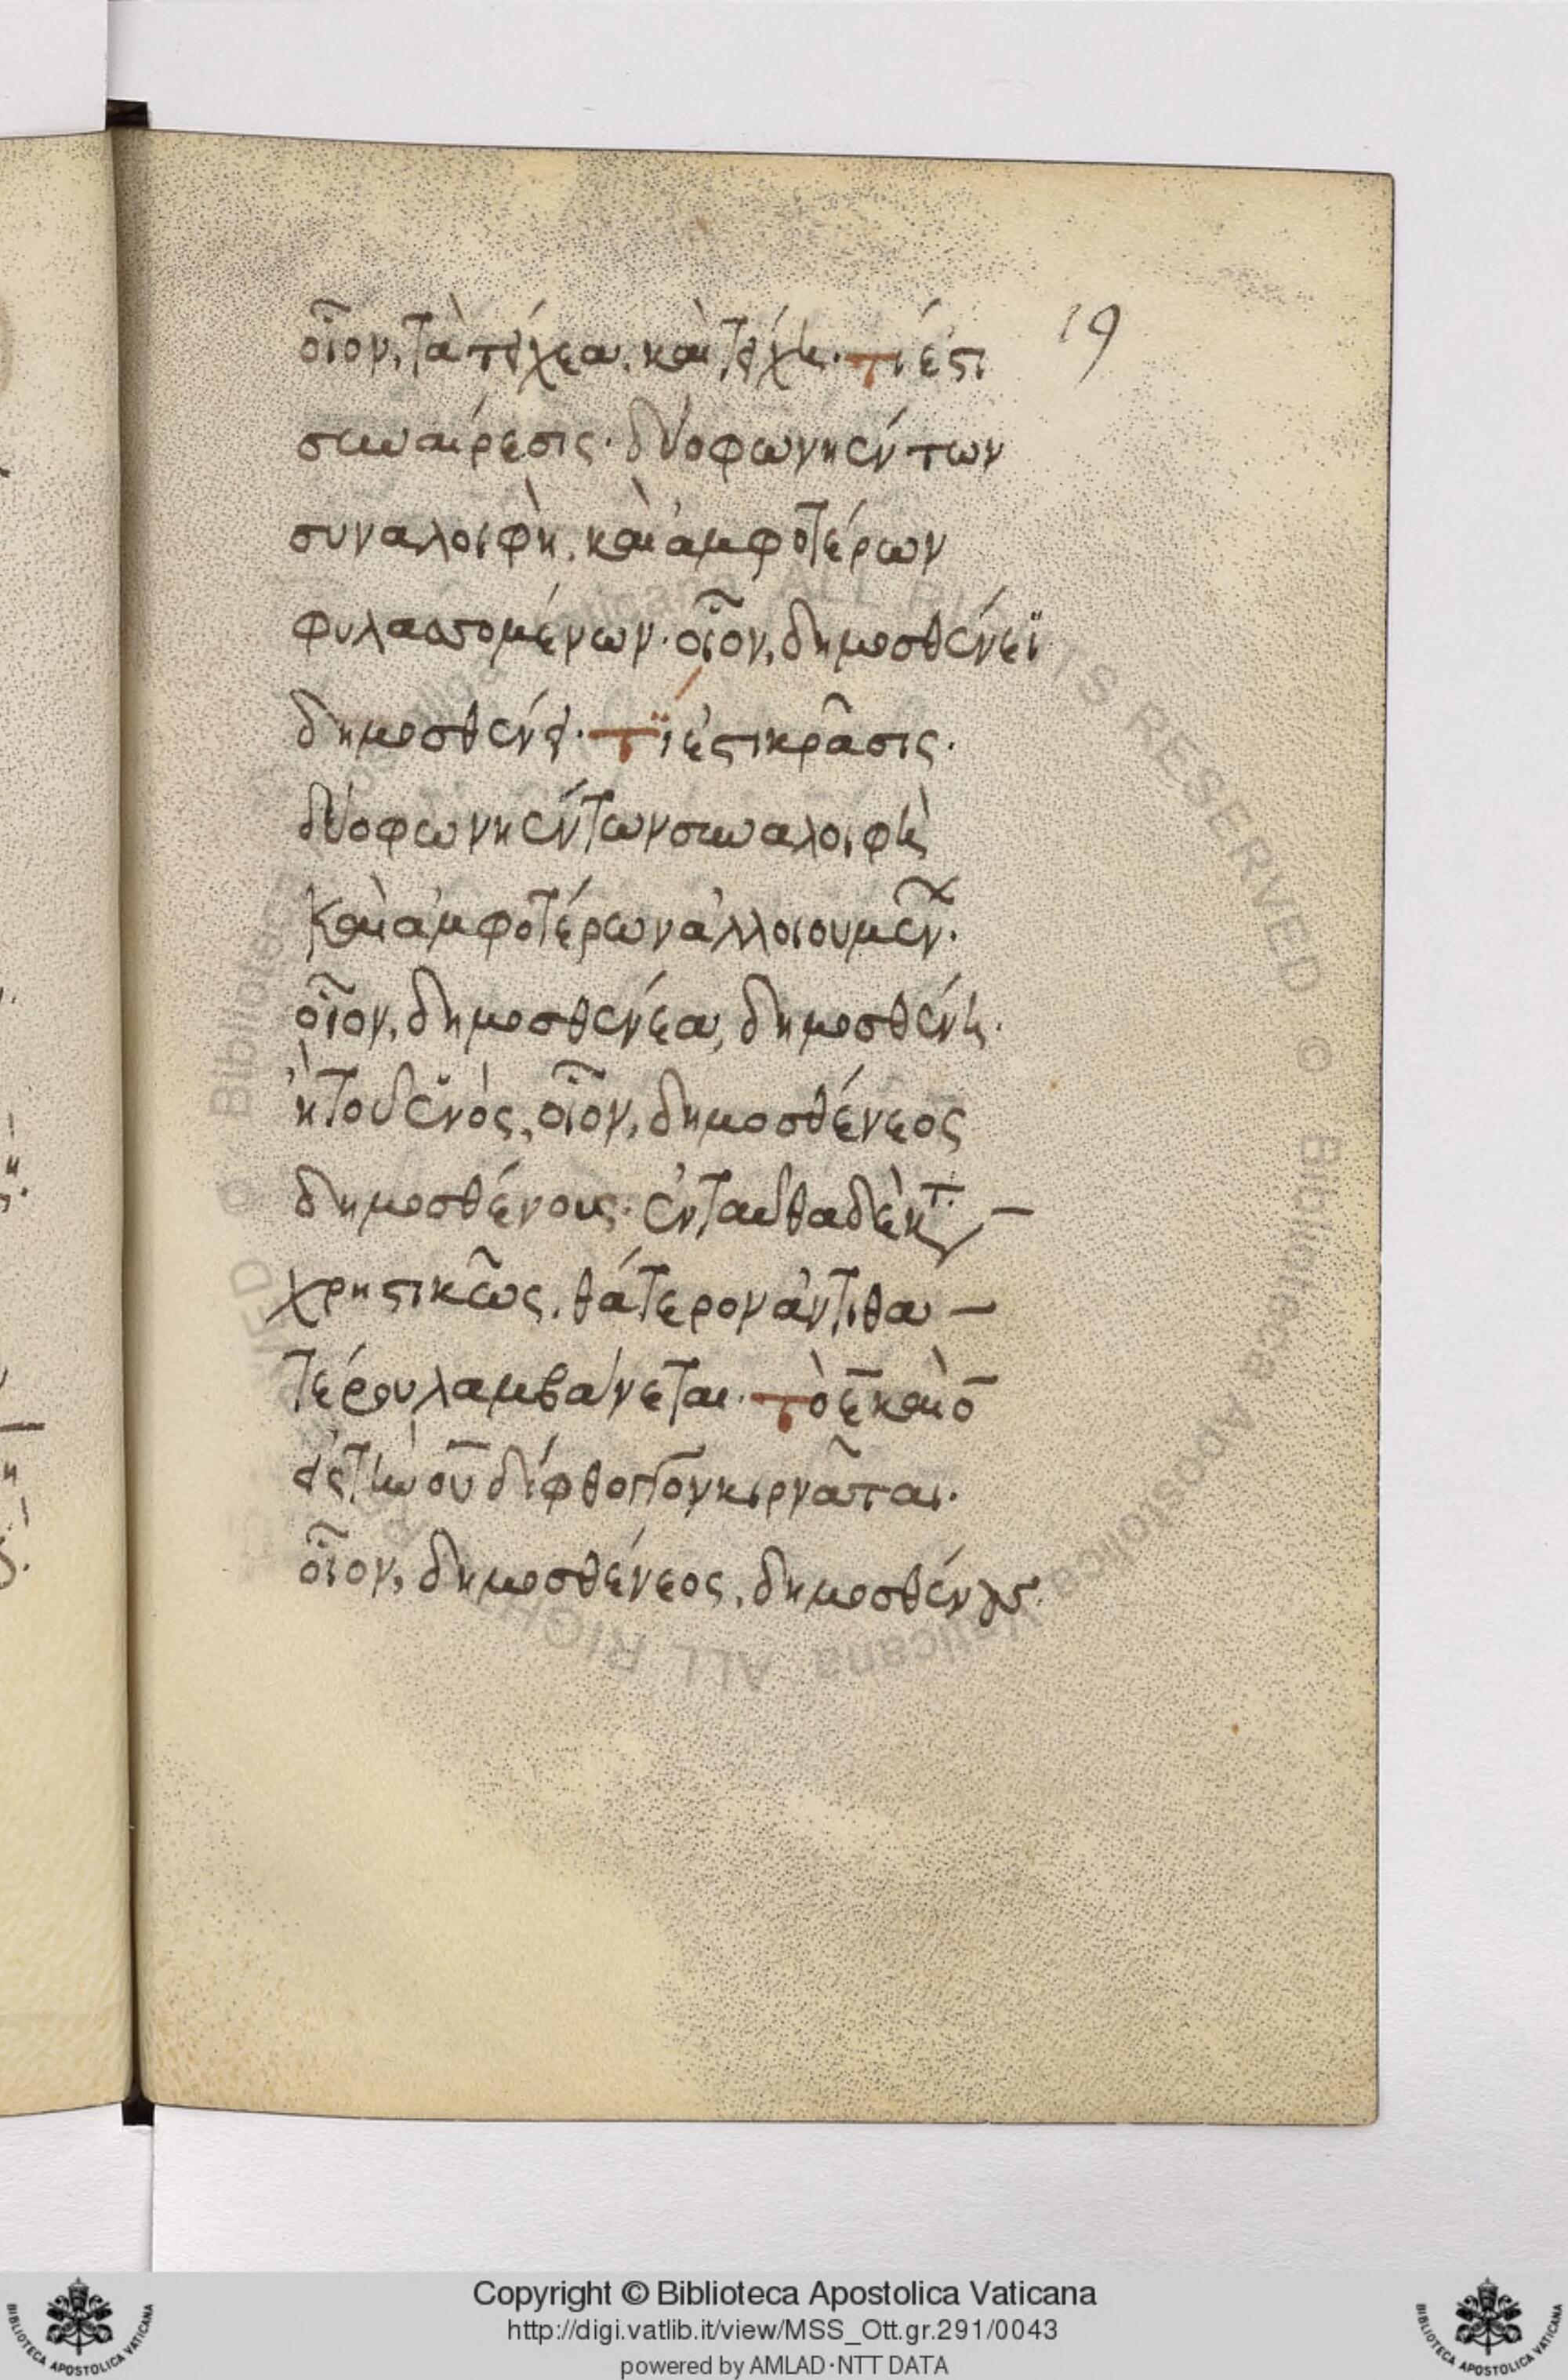 οἷον, τὰ τείχεα, καὶ τείχη. τί ἐστι
19
συναίρεσις. δύο φωνηέντων
συναλοιφὴ, καὶ ἀμφοτέρων
φυλαττομένων. οἷον, δημοσθένεϊ
δημοσθένει. τί ἐστι κρᾶσις.
δύο φωνηέντων συναλοιφὴ
καὶ ἀμφοτέρων ἀλλοιουμένων.
οἷον, δημοσθένεα, δημοσθένη.
ἢ τοῦ ἑνὸς, οἷον, δημοσθένεος
δημοσθένους. ἐνταῦθα δὲ
χρηστικῶς. θάτερον ἀντὶ θα-
τέρου λαμβάνεται. τὸ ε̄ καὶ ο̄
εἰς τὴν ου δίφθογγον κιρνᾶται.
οἷον, δημοσθένεος, δημοσθένους.
Copyright © Biblioteca Apostolica Vaticana
http://digi.vatlib.it/view/MSS_Ott.gr.291/0043
powered by AMLAD·NTT DATA
BIBLIOTECA APOSTOLICA VATICANA
BIBLIOTECA APOSTOLICA VATICANA